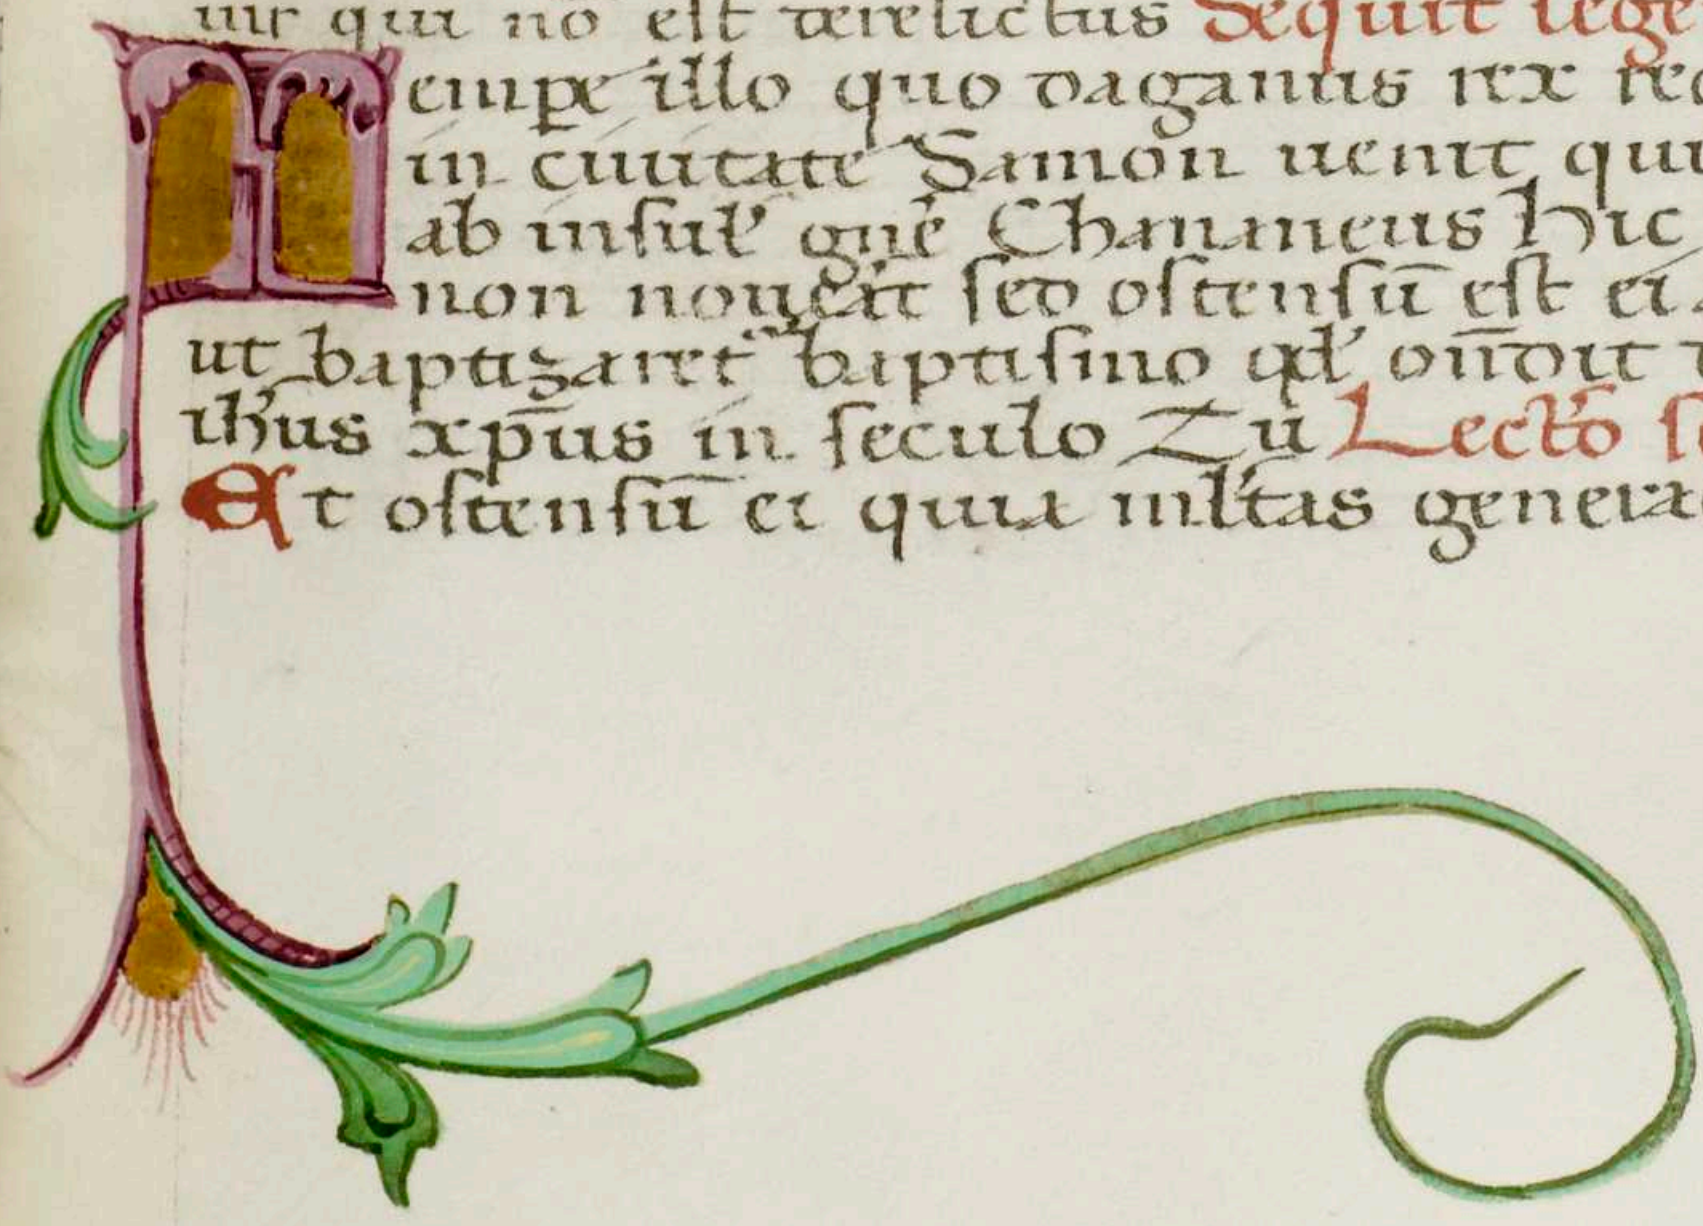 uir qui nō est derelictus Sequit lege
Tempe illo quo daganus rex
in ciuitate Samon uenit qui
ab insul' gn̄e Chananeus Hic
non nou̓at sed ostensū est ei
ut baptizaret baptismo qd' on̄dit
ih'us xp̄us in seculo Zu Lect'o
Et ostensū ei quia ml'tas genera